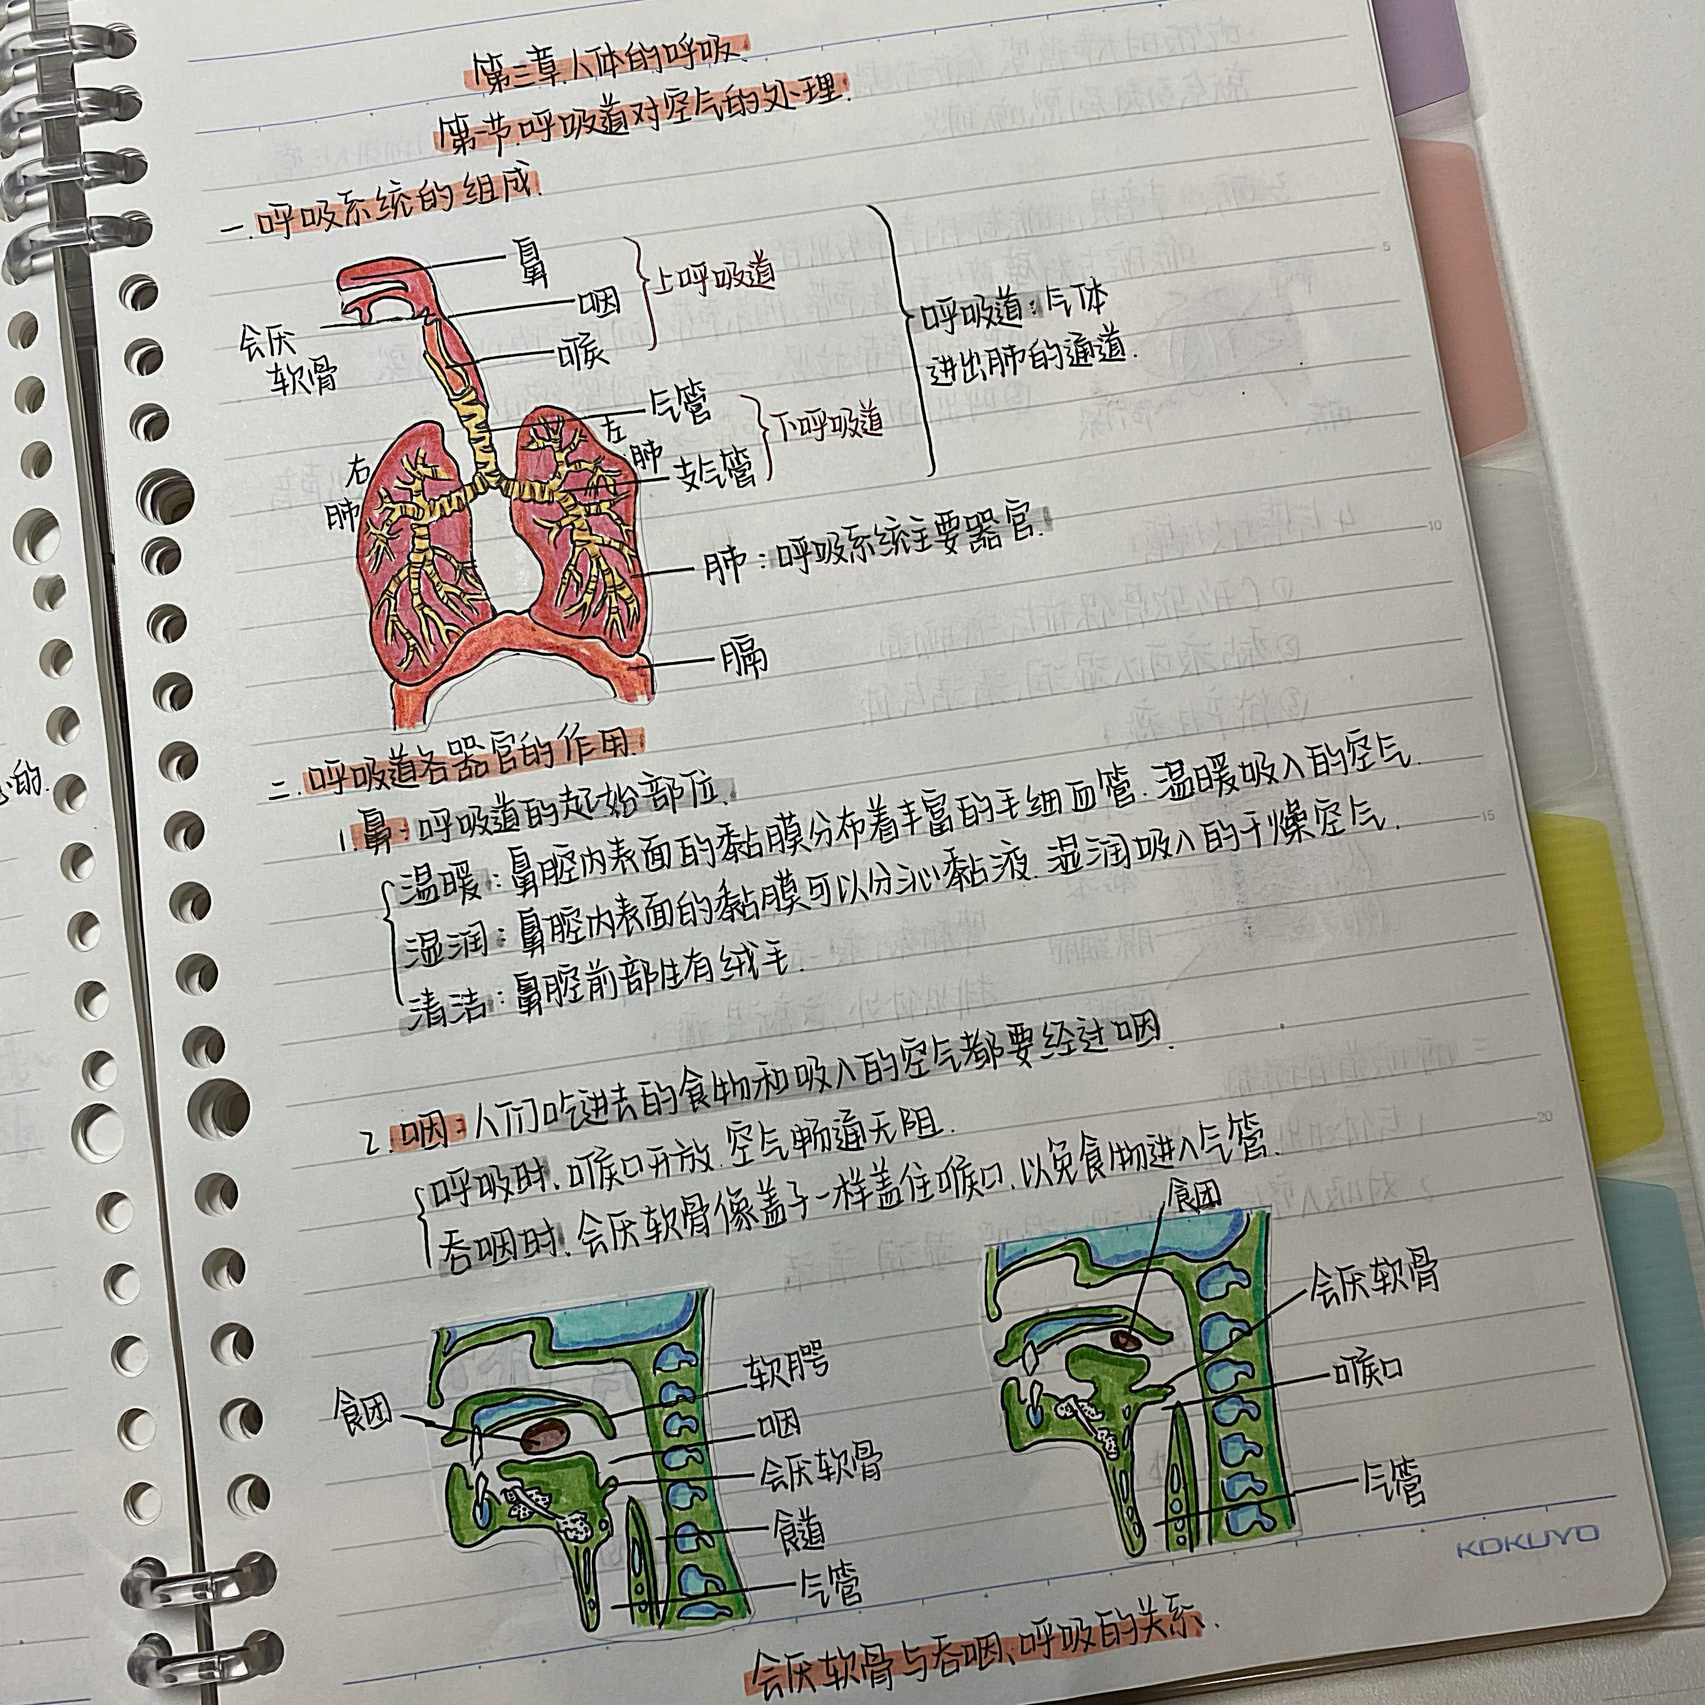 第三章.人体的呼吸.
第一节.呼吸道对空气的处理.
一.呼吸系统的组成.
鼻
咽
上呼吸道
会厌
软骨
喉
呼吸道:气体
进出肺的通道.
气管
左
肺
支气管
下呼吸道
右
肺
肺:呼吸系统主要器官.
膈
二.呼吸道各器官的作用.
1.鼻:呼吸道的起始部位.
温暖:鼻腔内表面的黏膜分布着丰富的毛细血管.温暖吸入的空气.
湿润:鼻腔内表面的黏膜可以分沁黏液.湿润吸入的干燥空气.
清洁:鼻腔前部生有绒毛.
2.咽:人们吃进去的食物和吸入的空气都要经过咽.
呼吸时、喉口开放.空气畅通无阻.
吞咽时.会厌软骨像盖子一样盖住喉口.以免食物进入气管.
食团
软腭
咽
会厌软骨
食道
气管
食团
会厌软骨
喉口
气管
会厌软骨与吞咽、呼吸的关系.
心的.
5
10
15
20
KOKUYO